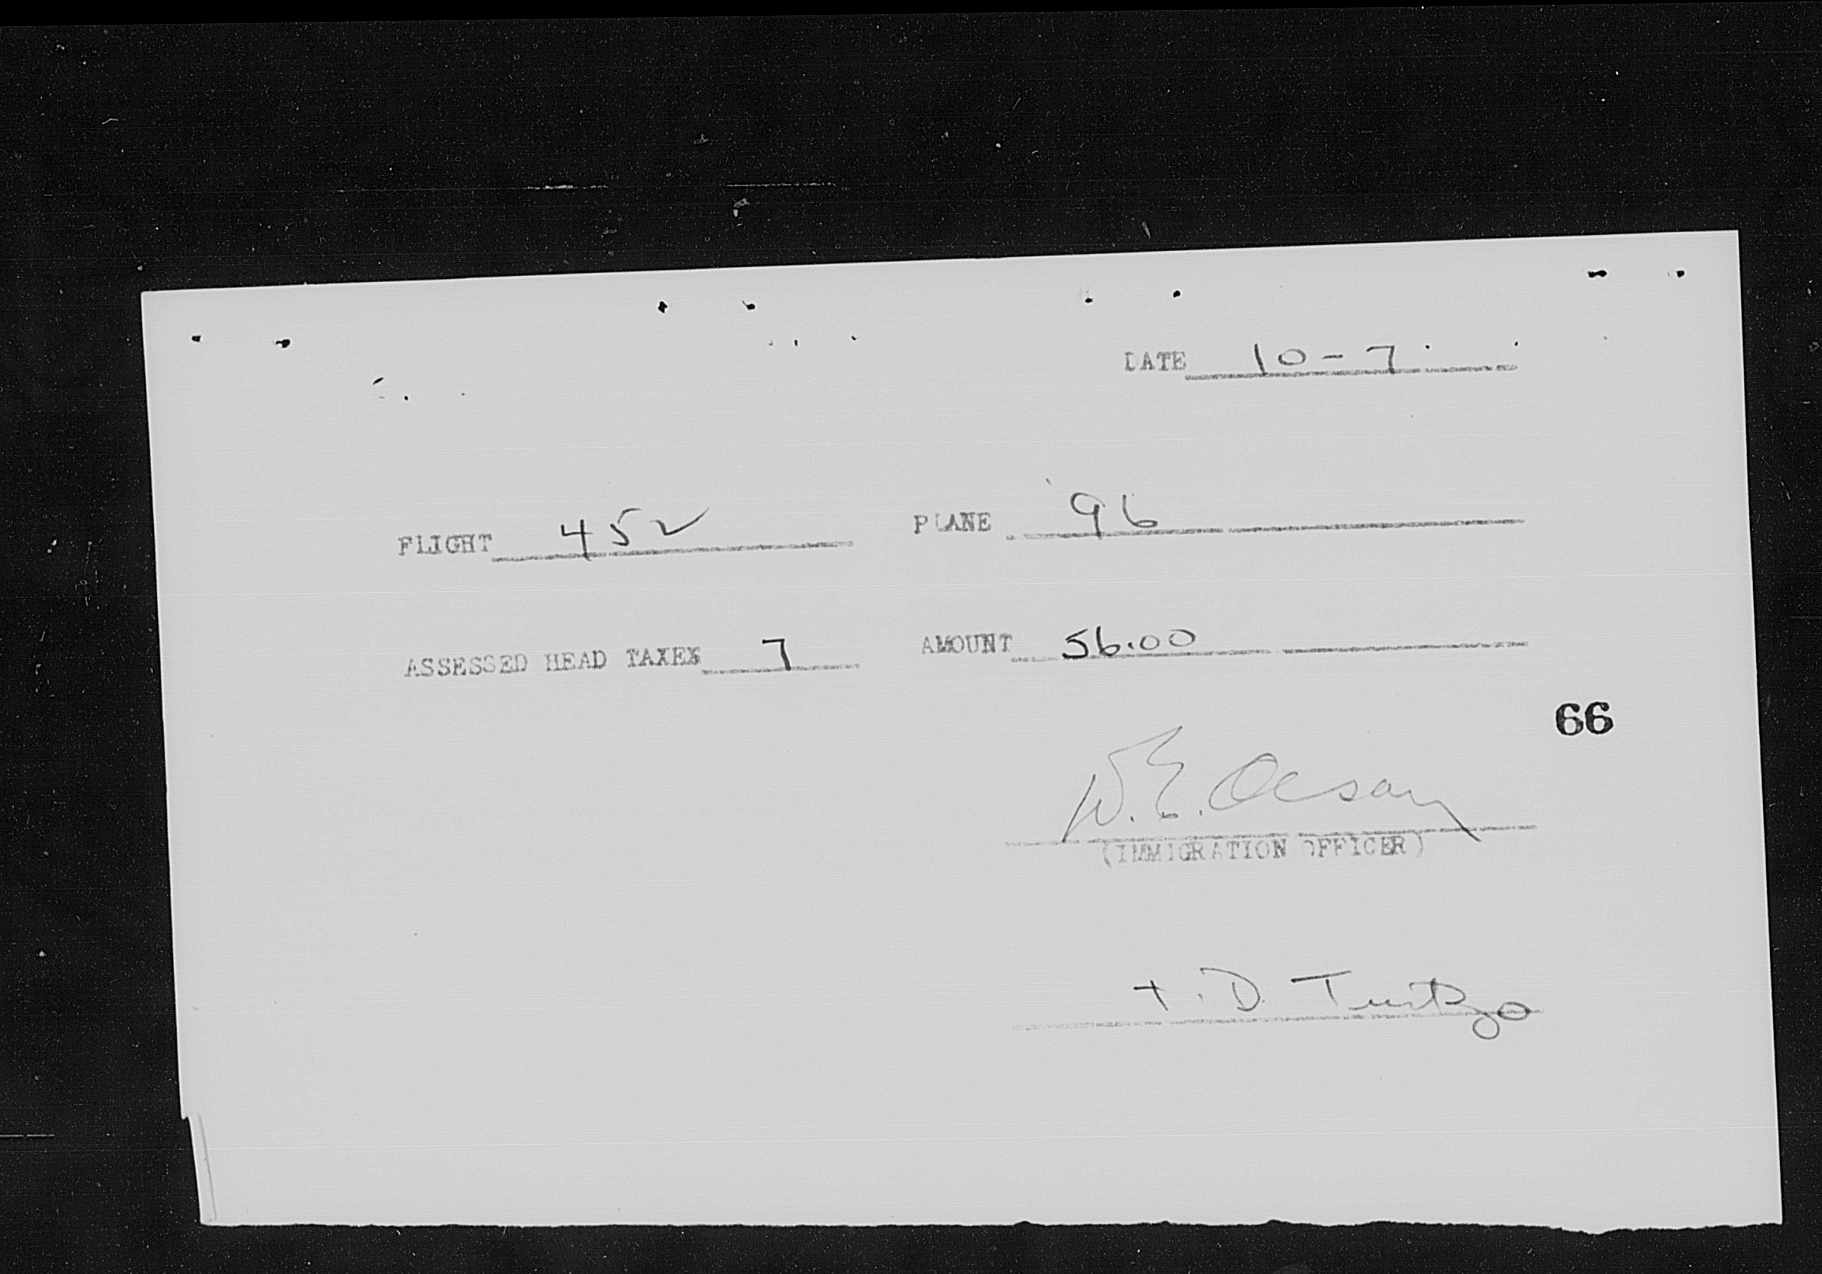 DATE 10-7
FLIGHT 452 PLANE 96
ASSESSED HEAD TAXES 7 AMOUNT 56.00
66
W. E. Olson
(IMMIGRATION OFFICER)
D.